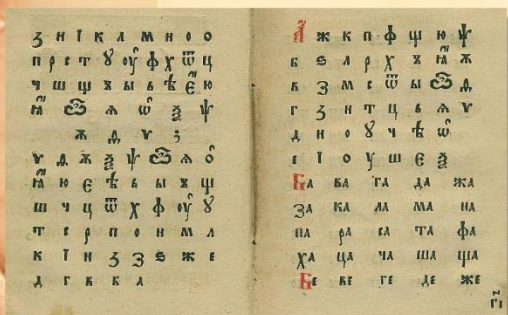 ꙁ и ї к л м н о о
п р с т ꙋ оу ф х ѿ ц
ч ш щ ъ ы ь ѣ є ю
ꙗ ѽ ѧ ѡ ѯ ѱ
ѵ ;
ѵ ѱ ѽ ѧ
ꙗ ю є ѣ ь ы ъ щ
ш ч ц ѿ х ф оу ꙋ
т с р п о н м л
к ї и ꙁ з ѕ ж е
д г в б а
А ж к п ф щ ю ѱ
б ѕ л р х ъ ꙗ ѫ
в з м с ѿ ы ѽ
г ꙁ н т ц ь ѧ ѵ
д и о ꙋ ч ѣ ѡ
е ї о у ш є ѯ
Ба ва га да жа
за ка ла ма на
па ра са та фа
ха ца ча ша ща
Бе ве ге де же
г҃і